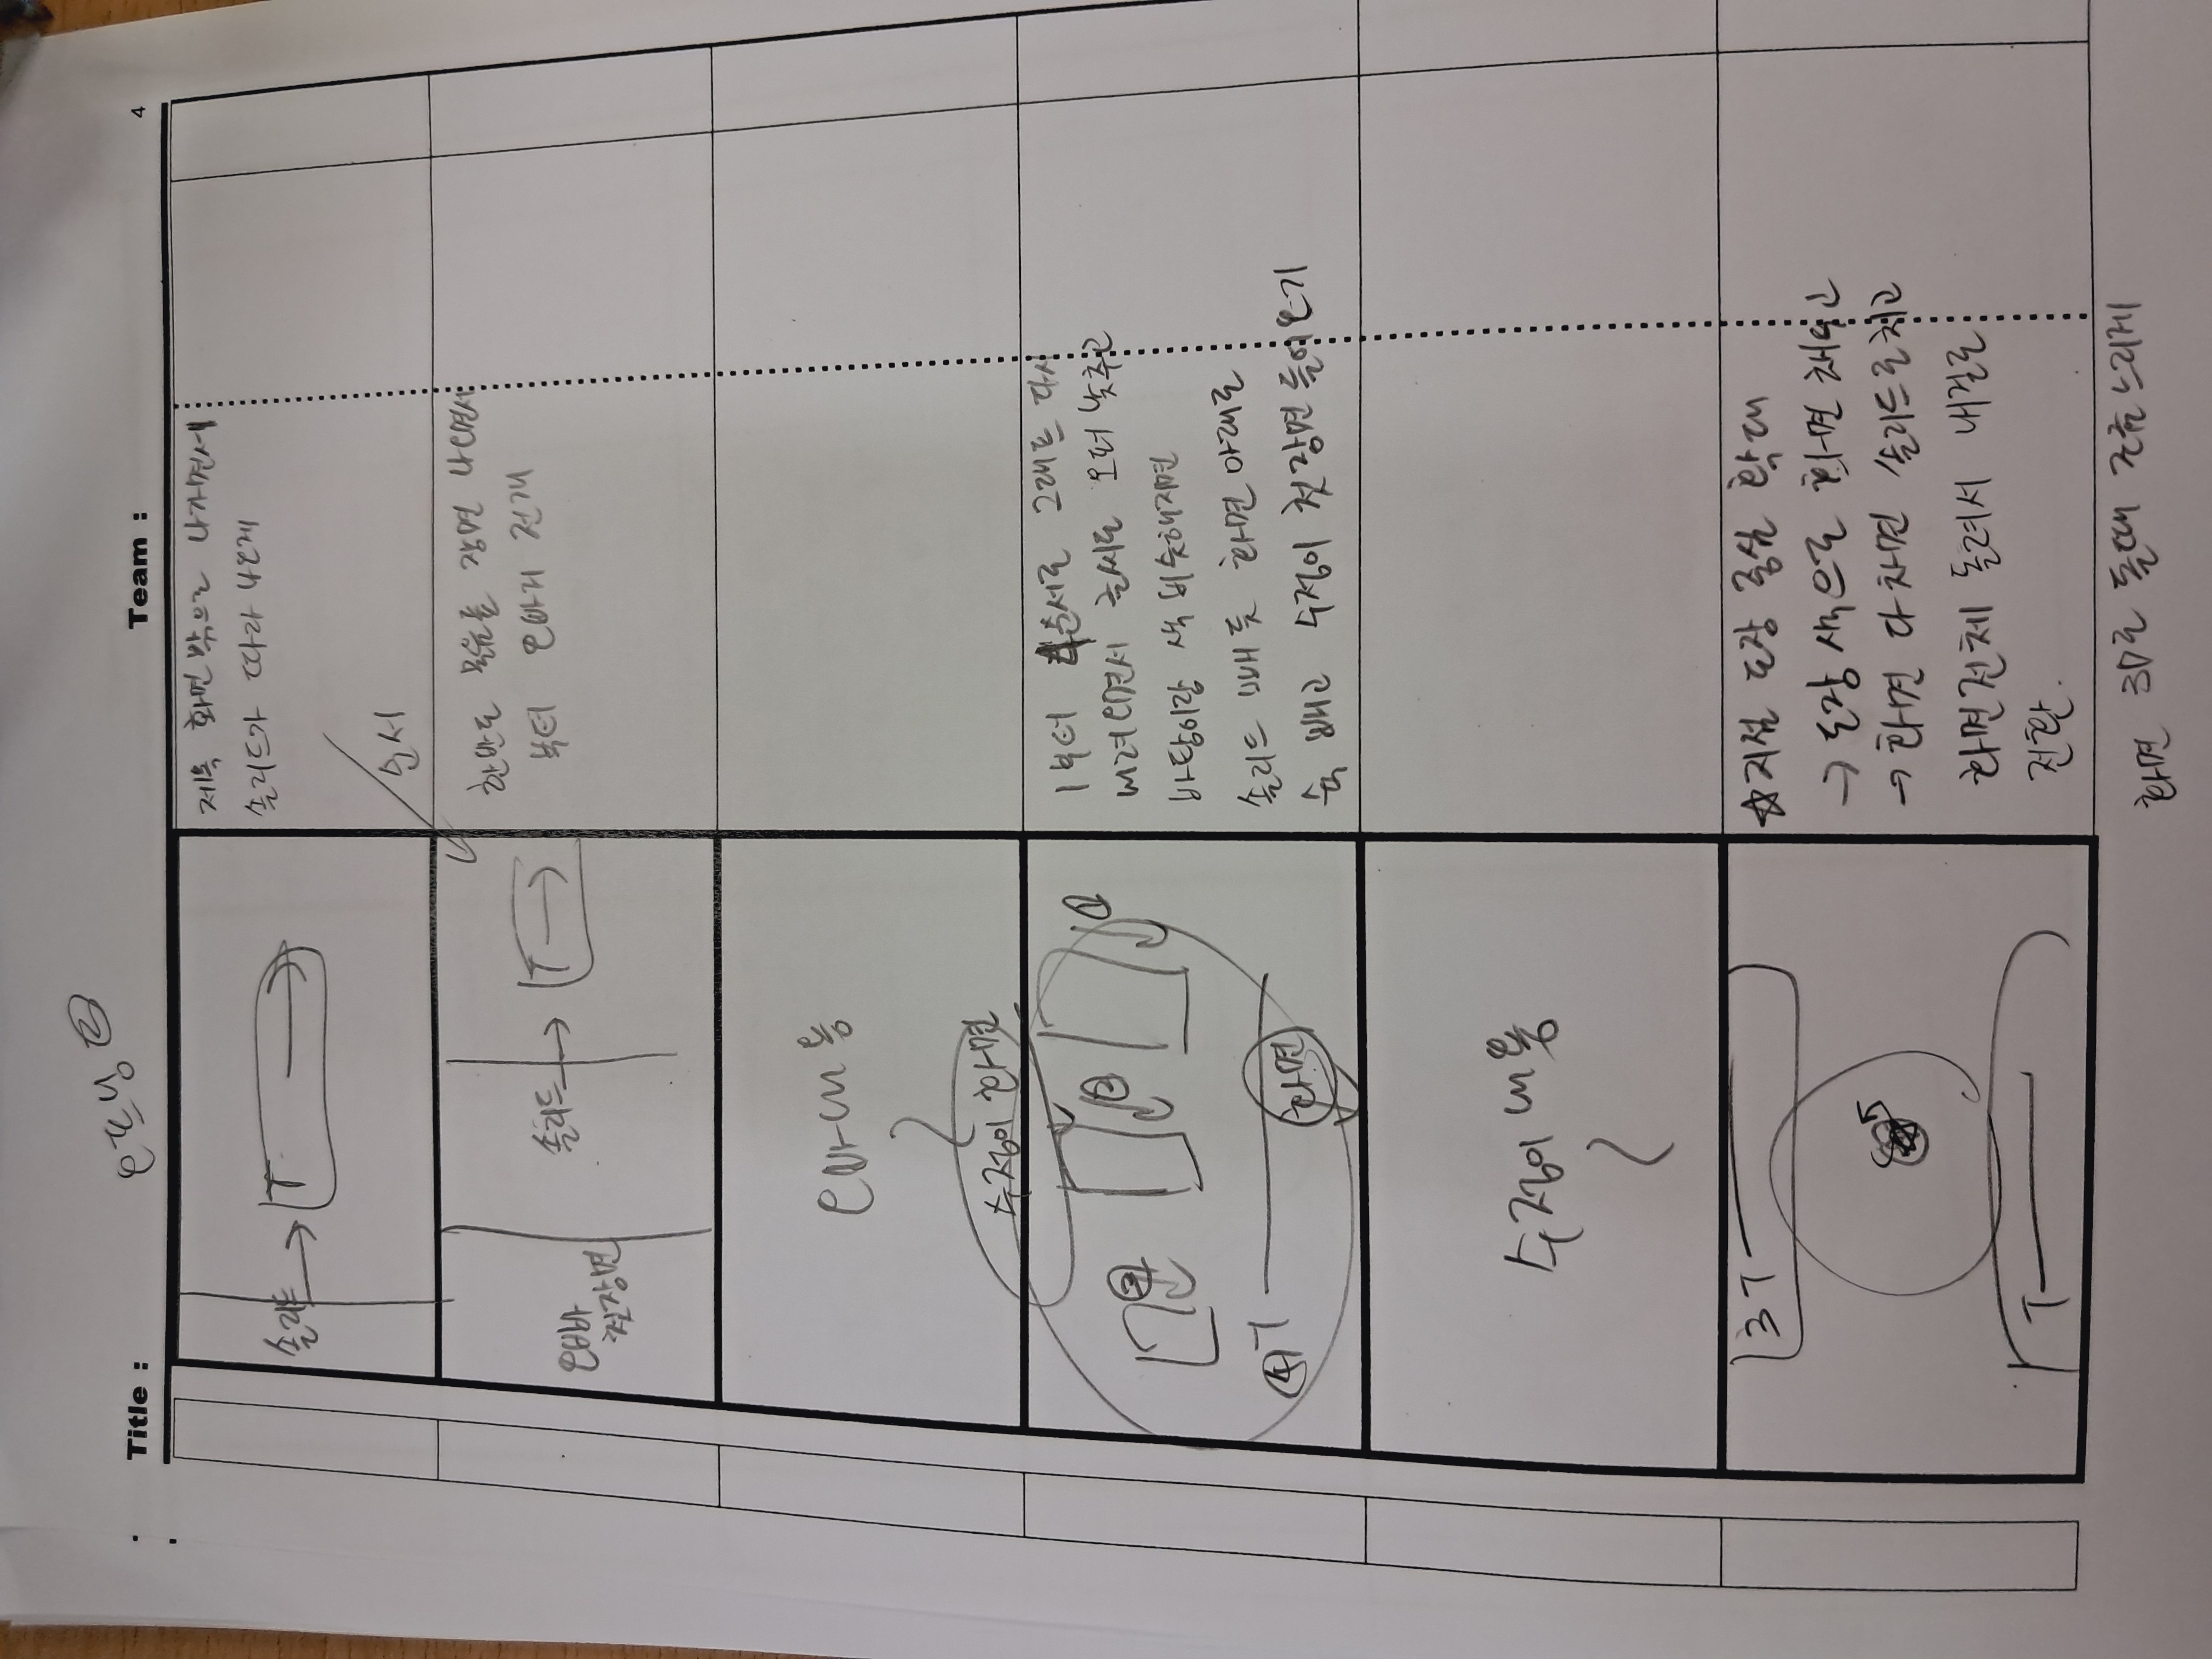 Title :
오프닝 ②
Team :
4
솔리드
T
제목 화면 밖으로 나가면서
솔리드가 따라 나오게
순서
오빠
첫장면
솔리드
T
한반도 물음표 장면 나오면서
부터 오빠거 전개
오빠 내용
수정이 화면
③
②
①
④ T
화면
1부터 4순서로 그래프 다시
내려오면서 글씨도 오퍼 낮추고
바탕이랑 색 비슷해지면
솔리드 빼듯 화면 아래로
슉 빼고 수정이 첫장면 들어오기
수정이 내용
3 T
T
☆지점 도장 중심 확대
→ 도장 색으로 화면 채우고
→ 화면 다 차면 솔리드로 치고
화면전체 돌려서 내걸로
전환.
화면 3D로 돌때 조금 느리게